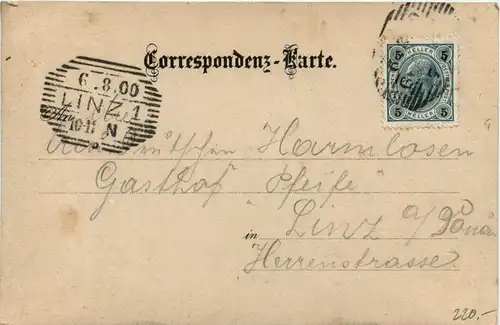 Correspondenz-Karte.
5 HELLER 5
5 HELLER 5
6.8.00
LINZ 1
10-11 N
Harmlosen
Gasthof "Pfeife"
in Linz a/Donau
Herrenstrasse
220.-